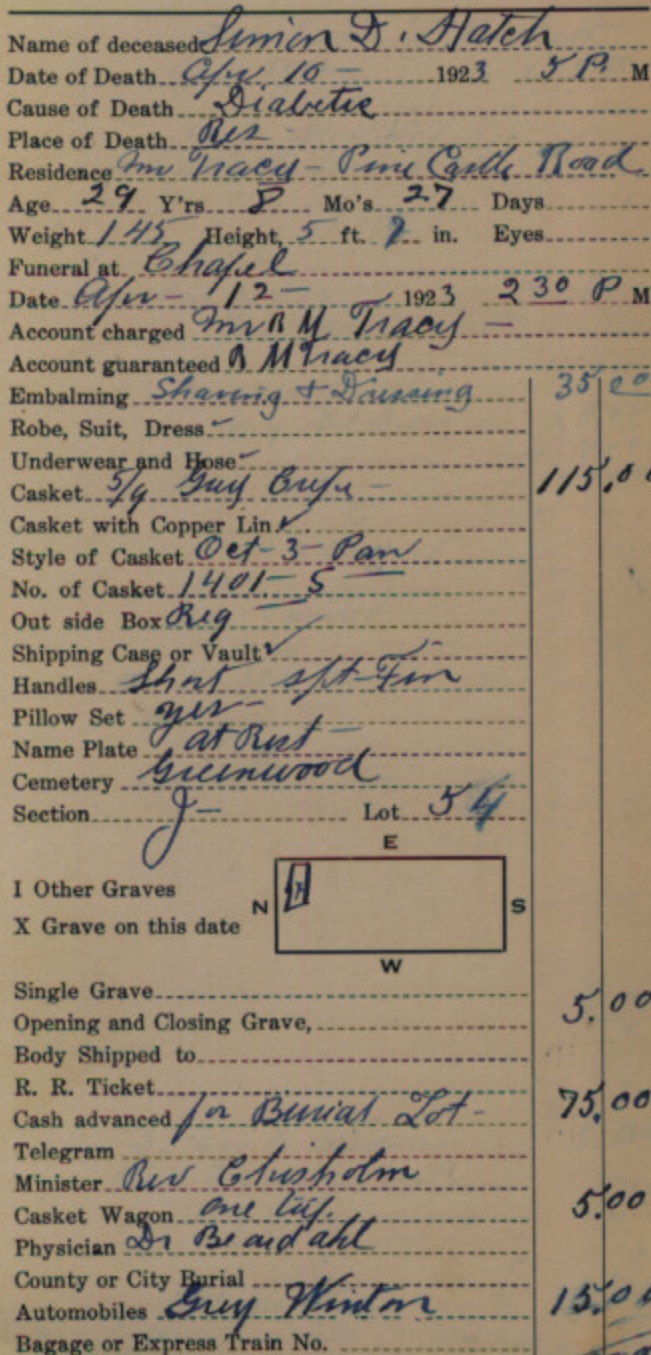 Name of deceased Simion D. Hatch
Date of Death Apr 10 - 1923 5 P. M
Cause of Death Diabetis
Place of Death Res
Residence Mr Tracy - Pine Castle Road
Age 29 Y'rs 8 Mo's 27 Days
Weight 145 Height, 5 ft. 7 in. Eyes
Funeral at Chapel
Date Apr - 12 - 1923 2 30 P M
Account charged Mr R M Tracy -
Account guaranteed R M Tracy
Embalming Shaving + Dressing 35 00
Robe, Suit, Dress -
Underwear and Hose -
Casket 5/9 Grey Crepe - 115.00
Casket with Copper Lin ✓
Style of Casket Oct - 3 - Pan
No. of Casket 1401 - S
Out side Box Reg
Shipping Case or Vault ✓
Handles Short
Pillow Set yes -
Name Plate at Rest -
Cemetery Greenwood
Section J - Lot 54
E
I Other Graves
N S
X Grave on this date
W
Single Grave
Opening and Closing Grave, 5.00
Body Shipped to
R. R. Ticket
Cash advanced for Burial Lot - 75.00
Telegram
Minister Rev Chisholm
Casket Wagon one 5.00
Physician Dr Beardahl
County or City Burial
Automobiles Grey Winton 15.00
Bagage or Express Train No.